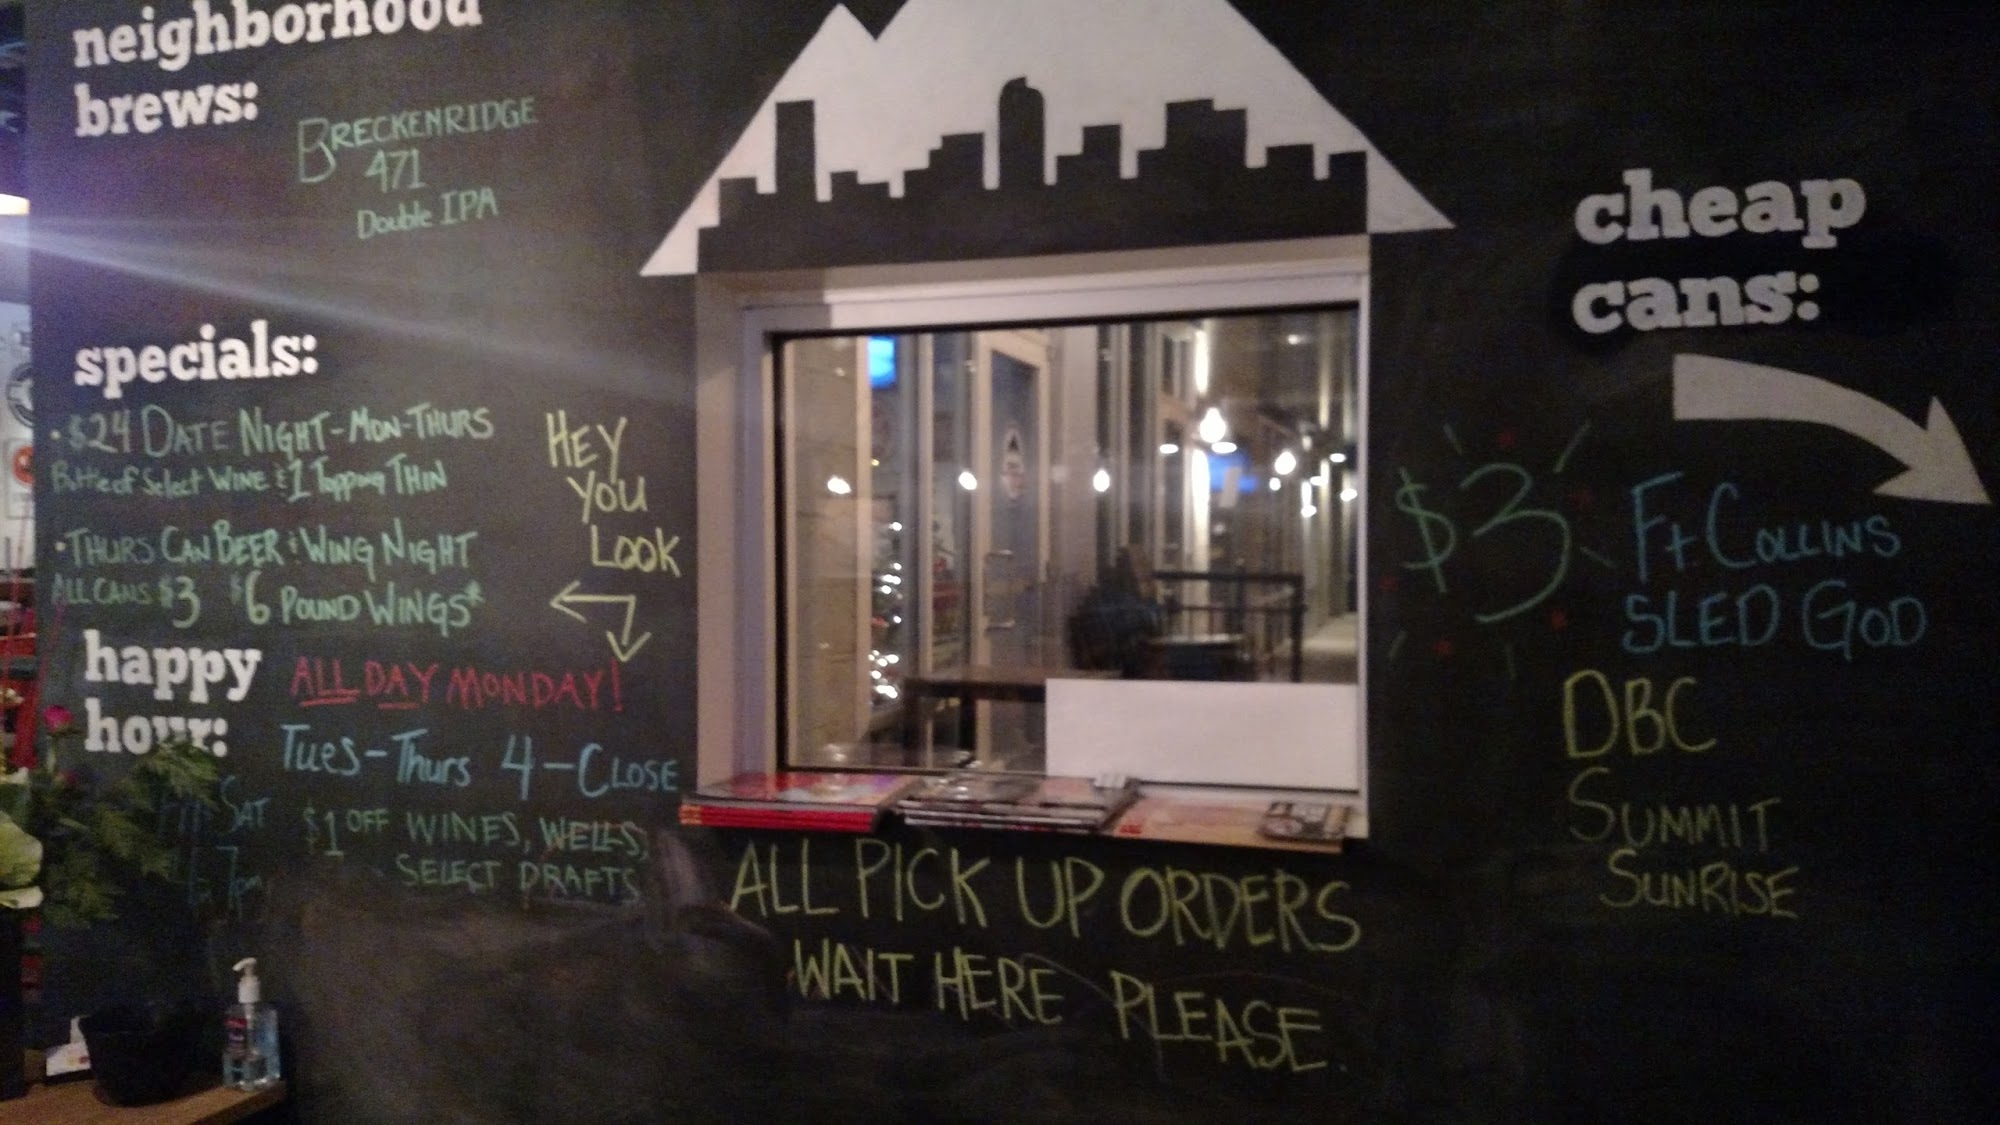 neighborhood
brews:
BRECKENRIDGE
471
Double IPA
specials:
• $24 DATE NIGHT - MON - THURS
Bottle of Select WINE & 1 Topping THIN
• THURS CAN BEER & WING NIGHT
ALL CANS $3 $6 POUND WINGS*
HEY
YOU
LOOK
happy
hour:
ALL DAY MONDAY!
TUES - THURS 4 - CLOSE
SAT
7pm
$1 OFF WINES, WELLS,
SELECT DRAFTS
ALL PICK UP ORDERS
WAIT HERE PLEASE.
cheap
cans:
$3
Ft COLLINS
SLED GOD
DBC
SUMMIT
SUNRISE